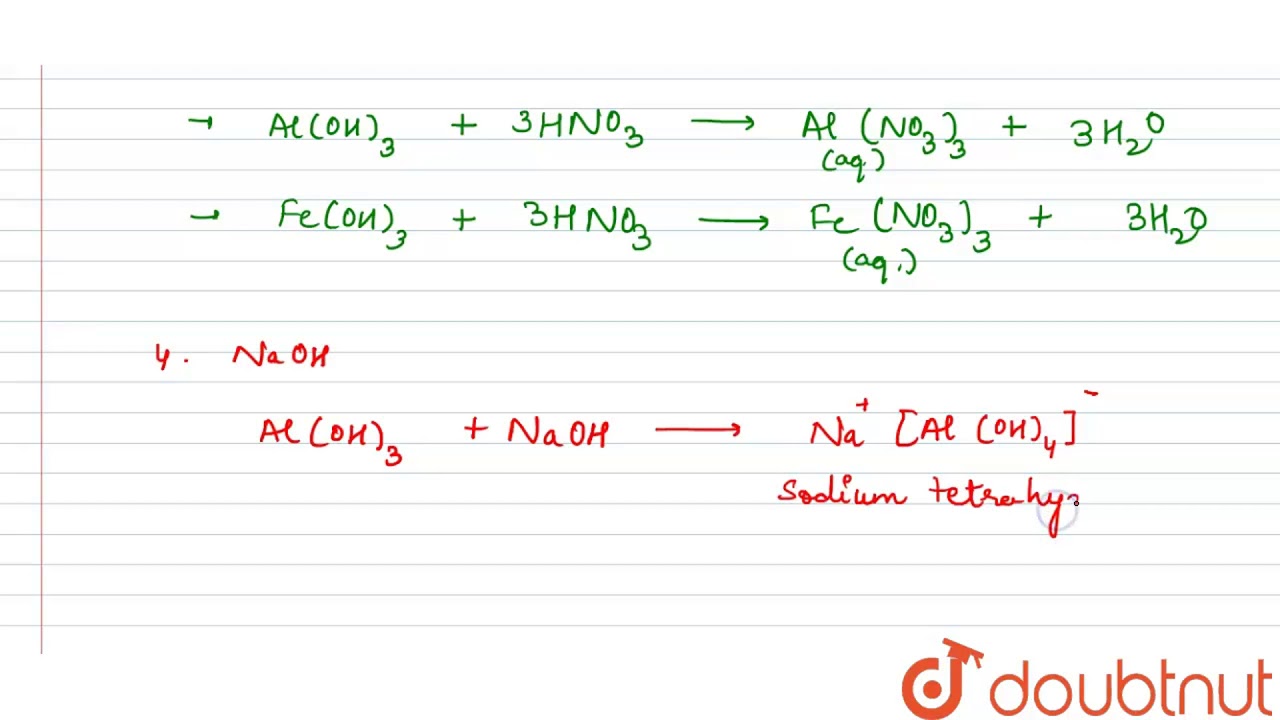 → Al(OH)₃ + 3HNO₃ ⟶ Al(NO₃)₃ + 3H₂O
(aq.)
→ Fe(OH)₃ + 3HNO₃ ⟶ Fe(NO₃)₃ + 3H₂O
(aq.)
4. NaOH
Al(OH)₃ + NaOH ⟶ Na⁺ [Al(OH)₄]⁻
Sodium tetrahy
doubtnut